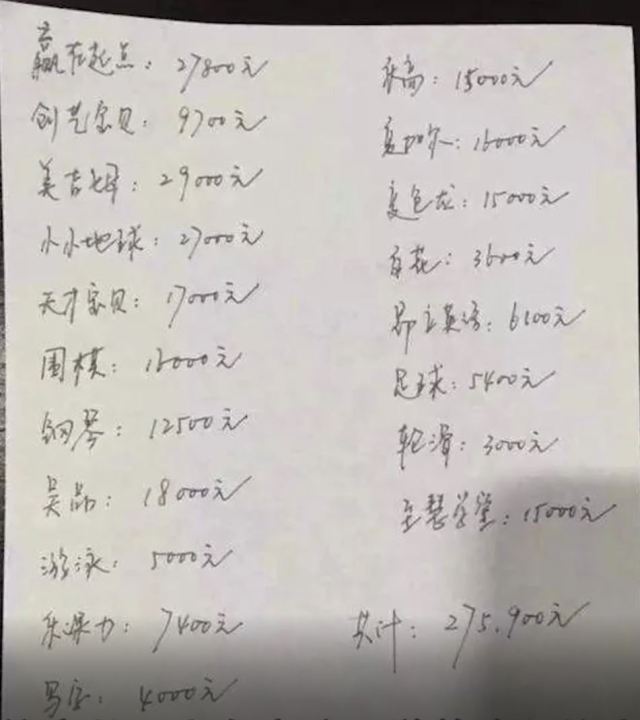 赢在起点：27800元
创艺宝贝：9700元
美吉姆：29000元
小小地球：27000元
天才宝贝：17000元
围棋：16000元
钢琴：12500元
18000元
游泳：5000元
7400元
写字：4000元
乐高：15000元
夏加尔：16000元
变色龙：15000元
3600元
昂立英语：6100元
足球：5400元
轮滑：3000元
至慧学堂：15000元
共计：275.900元